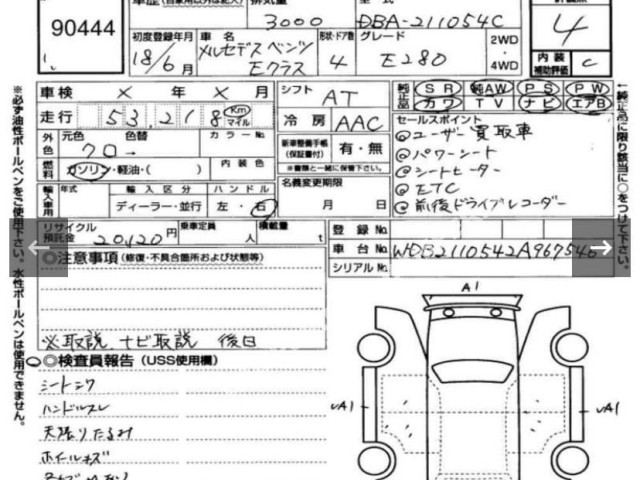 90444
車歴
排気量
3000
型式
DBA-211054C
4
初度登録年月
18/6月
車名
メルセデスベンツ
Eクラス
形状・ドア数
4
グレード
E280
2WD
・
4WD
内装
補助評価
C
車検 × 年 × 月
走行 53,218 Km マイル
シフト AT
冷房 AAC
純正品 SR 純AW PS PW
カワ TV ナビ エアB
外色 元色 色替 カラーNo.
クロ
燃料 ガソリン・軽油・( ) 内装色
新車整備手帳
(保証書付) 有・無
※書類と一緒に保管下さい。
名義変更期限
月 日
セールスポイント
@ユーザー買取車
@パワーシート
@シートヒーター
@ETC
@前後ドライブレコーダー
輸入車用 年式 輸入区分 ハンドル
ディーラー・並行 左・右
リサイクル
預託金 20,120円 乗車定員 人 積載量 t
登録No.
車台No. WDB2110542A967546
シリアルNo.
◎注意事項 (修復・不具合箇所および状態等)
※取説 ナビ取説 後日
○◎検査員報告 (USS使用欄)
シートシワ
ハンドルスレ
天張りたるみ
ホイールキズ
A1
A1
A1
※必ず油性ボールペンをご使用下さい。水性ボールペンは使用できません。